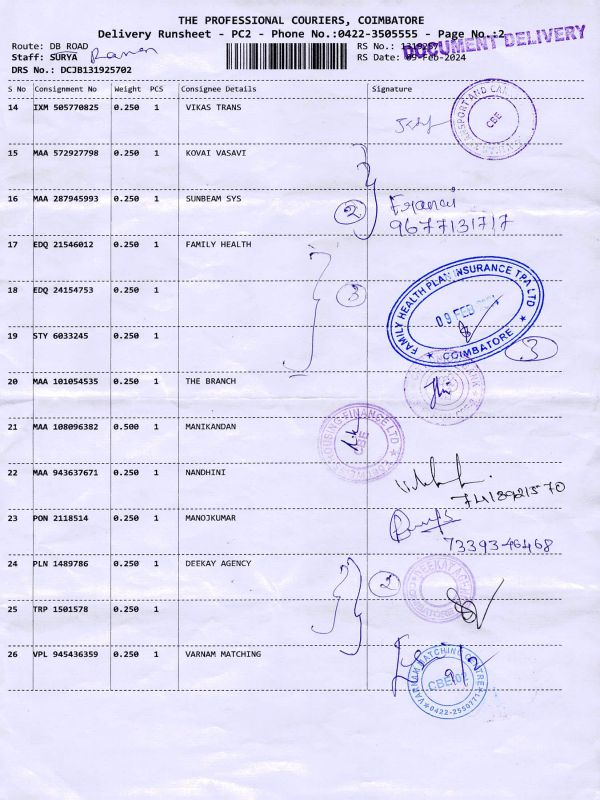 THE PROFESSIONAL COURIERS, COIMBATORE
Delivery Runsheet - PC2 - Phone No.:0422-3505555 - Page No.:2
DOCUMENT DELIVERY
Route: DB ROAD
Staff: SURYA Raman
RS Date: 09-Feb-2024
DRS No.: DCJB131925702
S No Consignment No Weight PCS Consignee Details Signature
14 IXM 505770825 0.250 1 VIKAS TRANS
CBE
15 MAA 572927798 0.250 1 KOVAI VASAVI
16 MAA 287945993 0.250 1 SUNBEAM SYS
2
9677131717
17 EDQ 21546012 0.250 1 FAMILY HEALTH
FAMILY HEALTH PLAN INSURANCE TPA LTD
09 FEB
COIMBATORE
18 EDQ 24154753 0.250 1
3
19 STY 6033245 0.250 1
3
20 MAA 101054535 0.250 1 THE BRANCH
21 MAA 108096382 0.500 1 MANIKANDAN
HOUSING FINANCE LTD
22 MAA 943637671 0.250 1 NANDHINI
23 PON 2118514 0.250 1 MANOJKUMAR
73393-46468
24 PLN 1489786 0.250 1 DEEKAY AGENCY
2
25 TRP 1501578 0.250 1
26 VPL 945436359 0.250 1 VARNAM MATCHING
VARNAM MATCHING CENTRE
0422-2550771